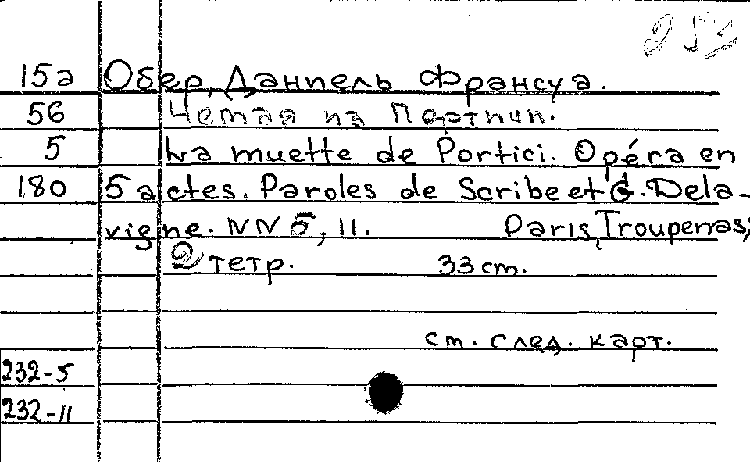 252
15а Обер, Даниель Франсуа.
56 Немая из Портичи.
5 La muette de Portici. Opéra en
180 5 actes. Paroles de Scribe et G. Dela-
vigne. NN 5, 11. Paris, Troupenas,
2 тетр. 33 cm.
см. след. карт.
232-5
232-11